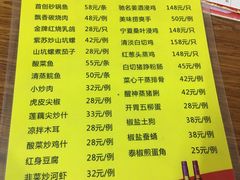 首创砂锅鱼 58元/条
飘香碳烧肉 48元/例
金牌红烧乳鸽 28元/只
紫苏炒山坑螺 28元/例
山坑螺煮茄子 28元/例
酸菜鱼 55元/条
清蒸鲩鱼 50元/条
小炒肉 32元/例
虎皮尖椒 22元/例
莲藕尖炒什 33元/例
凉拌木耳 28元/例
酸菜炒鸡什 28元/例
红身豆腐 28元/例
韭菜炒河虾 32元/例
驰名姜酒浸鸡 148元/只
美味捞夹手 50元/例
宁夏桑叶浸鸡 148元/只
清淡白切鸡 158元/只
红葱头蒸鸡 158元/只
白切猪脷粉肠 50元/例
菜心干蒸排骨 50元/例
醒神蒸猪脷 42元/例
开胃五柳蛋 28元/例
椒盐土狗 38元/例
椒盐蚕蛹 38元/例
泰椒煎蛋角 25元/例